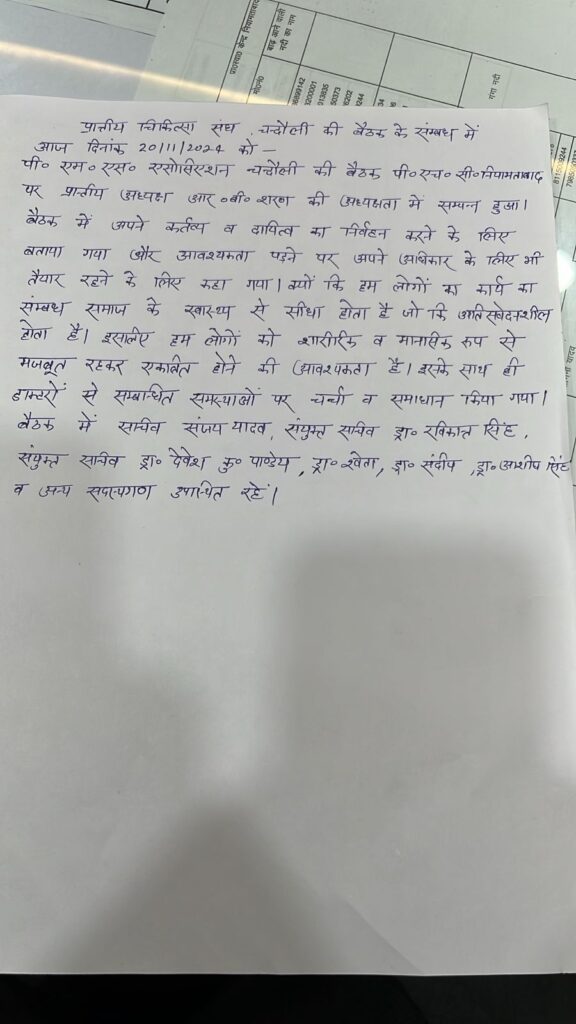 प्रा०स्वा० केन्द्र नियामताबाद
मो०नं०
बाढ़ आने वाली
नदी का नाम
गंगा नदी
प्रान्तीय चिकित्सा संघ, चन्दौली की बैठक के संम्बध में
आज दिनांक 20/11/2024 को —
पी० एम० एस० एसोसिएशन चन्दौली की बैठक पी० एच० सी० नियामताबाद
पर प्रान्तीय अध्यक्ष आर० बी० शरण की अध्यक्षता में सम्पन्न हुआ।
बैठक में अपने कर्तव्य व दायित्व का निर्वहन करने के लिए
बताया गया और आवश्यकता पड़ने पर अपने अधिकार के लिए भी
तैयार रहने के लिए कहा गया। क्यों कि हम लोगों का कार्य का
संम्बध समाज के स्वास्थ्य से सीधा होता है जो कि अतिसंवेदनशील
होता है। इसलिए हम लोगों को शारीरिक व मानसिक रूप से
मजबूत रहकर एकत्रित होने की आवश्यकता है। इसके साथ ही
डाक्टरों से सम्बन्धित समस्याओं पर चर्चा व समाधान किया गया।
बैठक में सचिव संजय यादव, संयुक्त सचिव डा० रविकान्त सिंह,
संयुक्त सचिव डा० देवेश कु० पाण्डेय, डा० श्वेता, डा० संदीप, डा० आशीष सिंह
व अन्य सदस्यगण उपस्थित रहें।